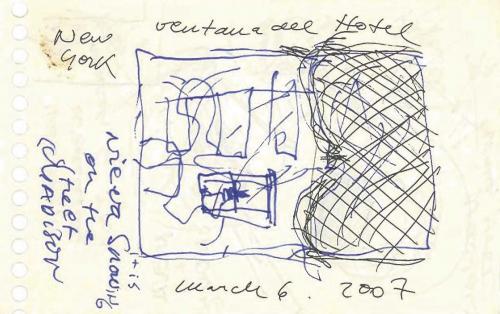 New York
ventana del Hotel
nieva it is Snowing
on the
street
(MADISON
march 6. 2007